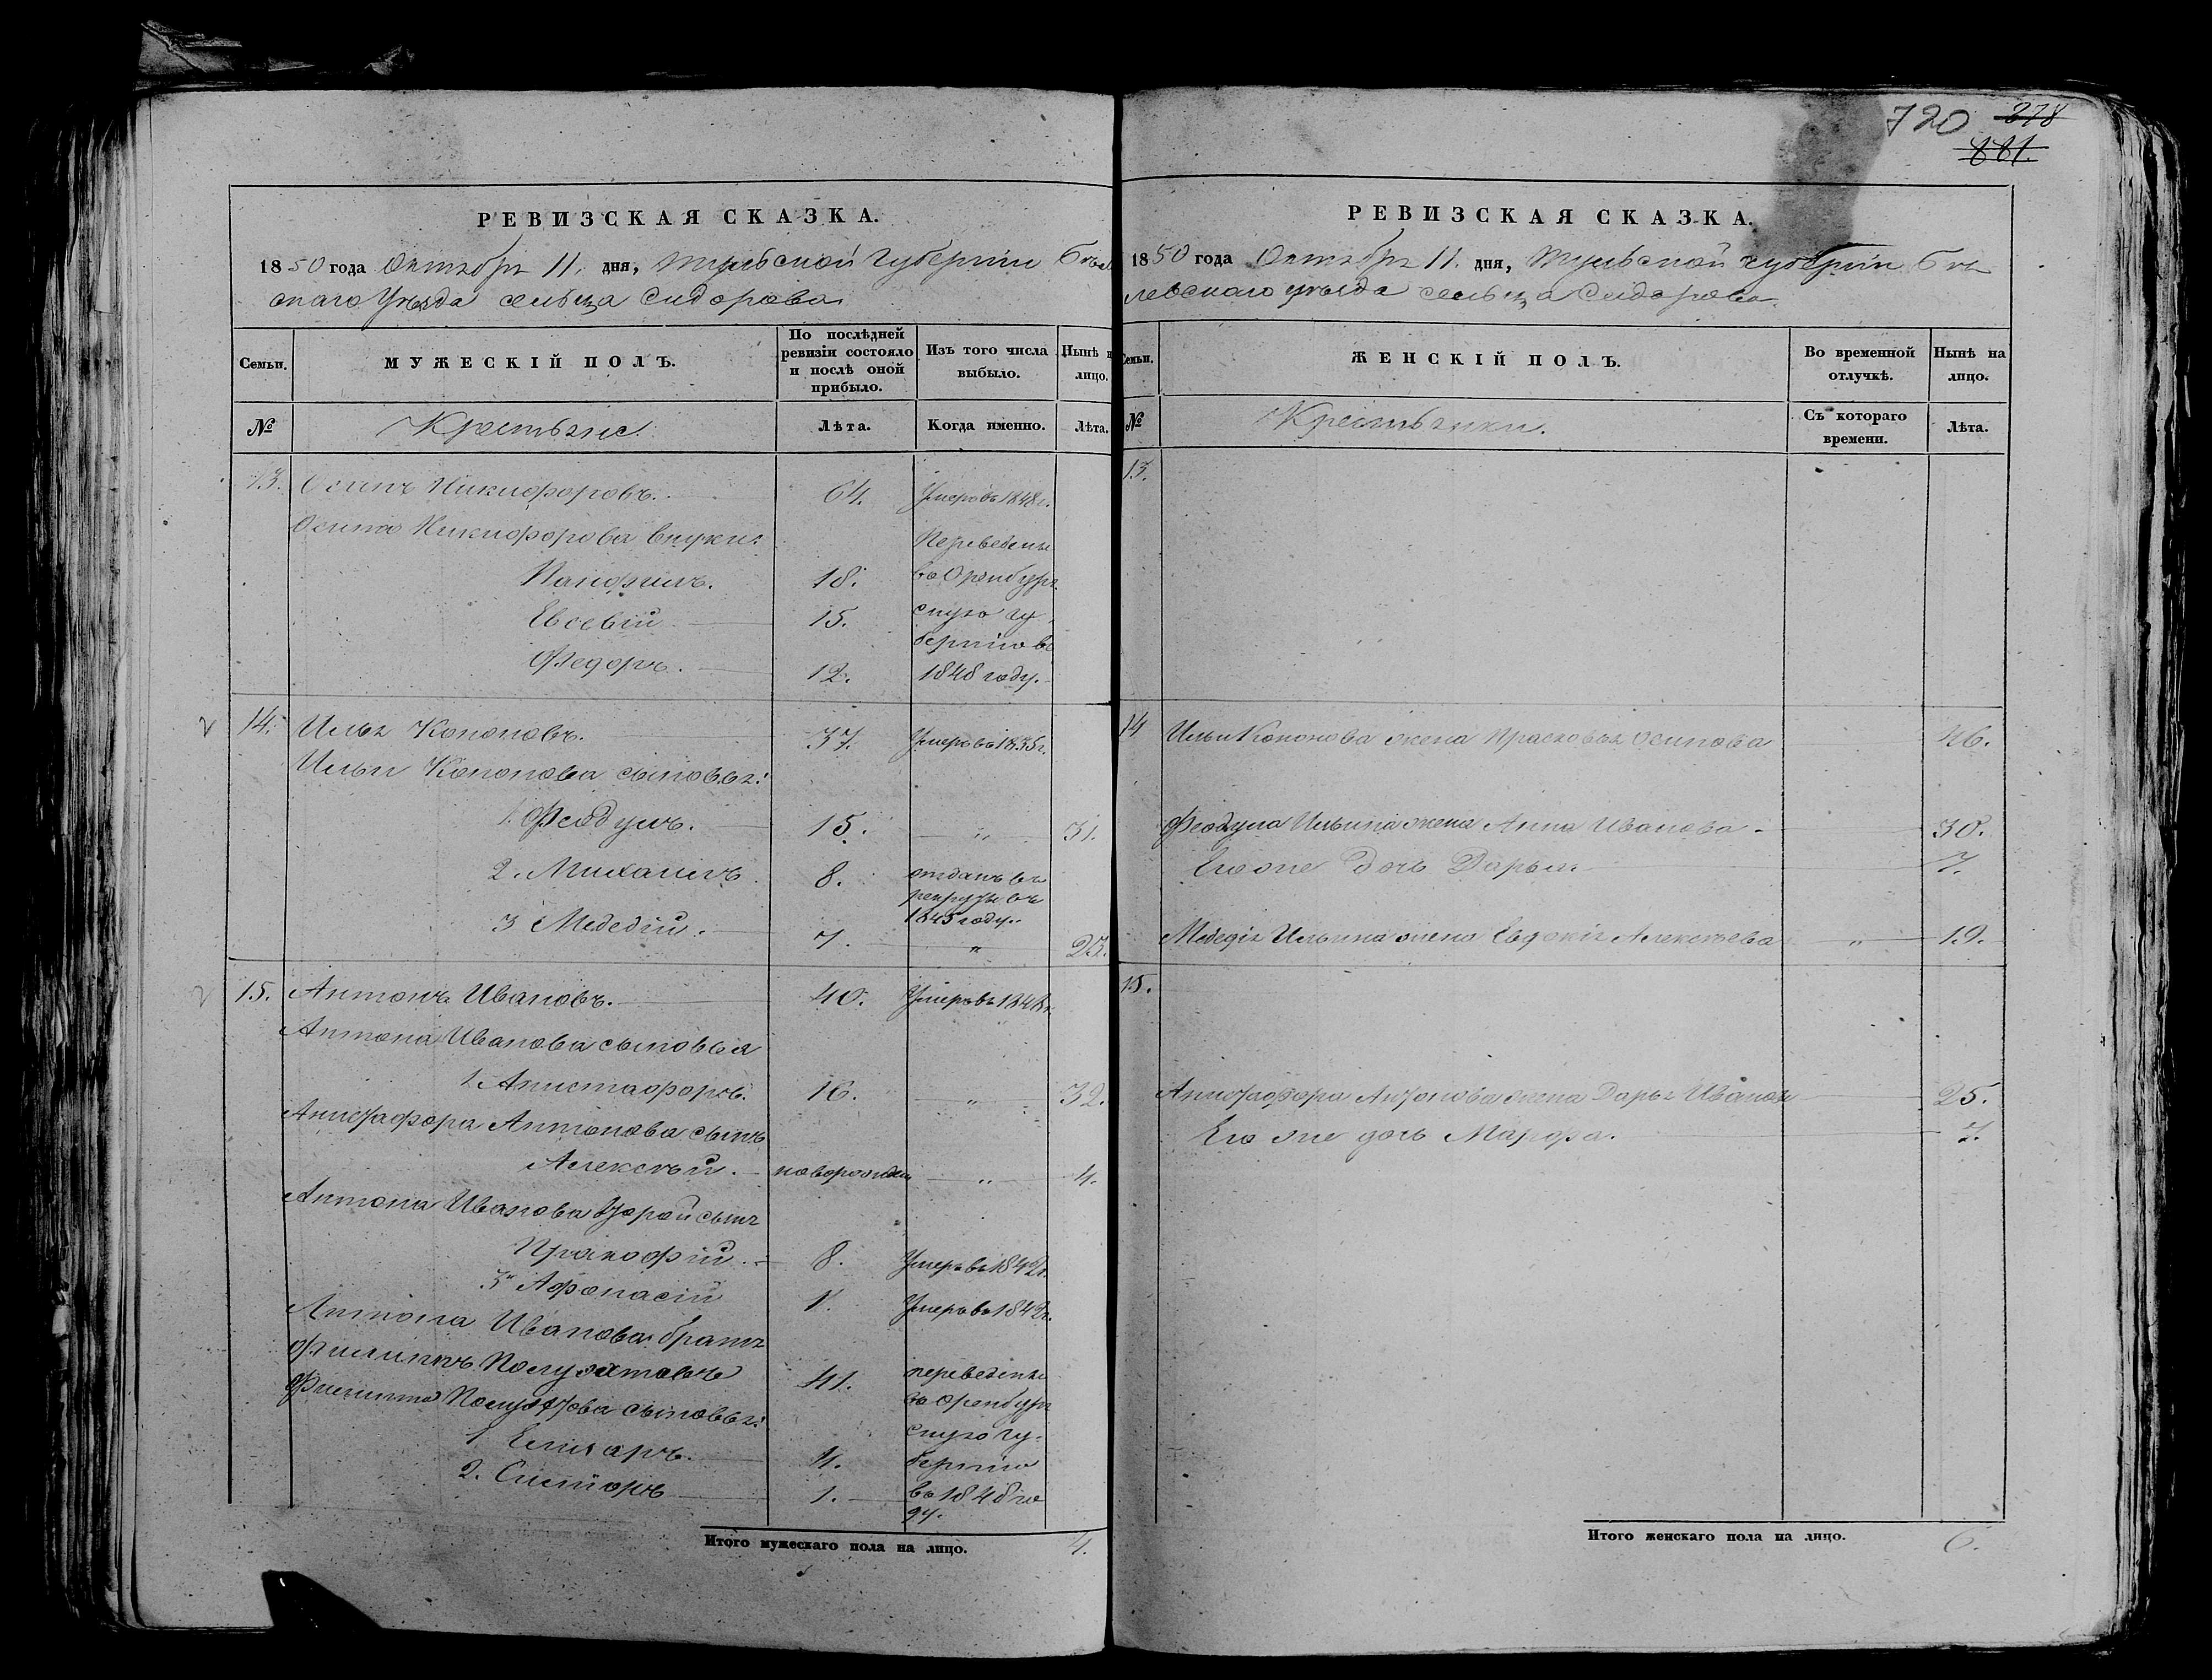 720 278
881.
РЕВИЗСКАЯ СКАЗКА.
1850 года Октября 11. дня, Тульской Губернии Бѣлев
скаго Уѣзда сельца Сидорова
Семьи. МУЖЕСКІЙ ПОЛЪ. По послѣдней ревизіи состояло и послѣ оной прибыло. Изъ того числа выбыло. Нынѣ на лицо.
№ Крестьяне. Лѣта. Когда именно. Лѣта.
13. Осипъ Никифоровъ. 64. Умеръ въ 1848 г.
Осипа Никифорова внуки: Переведены
Панфилъ. 18. въ Оренбург
Евсевій 15. скую гу
бернію въ
Федоръ. 12. 1848 году.
14. Илья Кононовъ. 37. Умеръ въ 1838 г.
Ильи Кононова сыновья:
1. Феодулъ. 15. „ 31.
2. Михаилъ 8. отданъ въ
рекруты въ
1845 году.
3 Меѳедій. 7. „ 23.
15. Антонъ Ивановъ. 40. Умеръ въ 1848 г.
Антона Иванова сыновья
1. Анистафоръ. 16. „ 32.
Анистафора Антонова сынъ
Алексѣй. новорожден „ 4.
Антона Иванова второй сынъ
Пракофій 8. Умеръ въ 1842 г.
3й Афонасій 1. Умеръ въ 1842 г.
Антона Иванова братъ
Филиппъ Полуэктовъ 41. переведены
въ Оренбург
Филиппа Полуэктова сыновья: скую гу
1. Елизаръ. 4. бернію
2. Снепіоръ 1. въ 1848 го
ду.
Итого мужескаго пола на лицо. 4.
РЕВИЗСКАЯ СКАЗКА.
1850 года Октября 11. дня, Тульской губерніи Бѣ
левскаго уѣзда сельца Сидорова.
Семьи. ЖЕНСКІЙ ПОЛЪ. Во временной отлучкѣ. Нынѣ на лицо.
№ Крестьянки. Съ котораго времени. Лѣта.
13.
14 Ильи Кононова жена Прасковья Осипова 46.
Феодула Ильина жена Анна Иванова 30.
Его же дочь Дарья. 7.
Меѳедія Ильина жена Евдокія Алексѣева „ 19.
15.
Анистафора Антонова жена Дарья Иванова 25.
Его же дочь Марфа. 7.
Итого женскаго пола на лицо. 6.